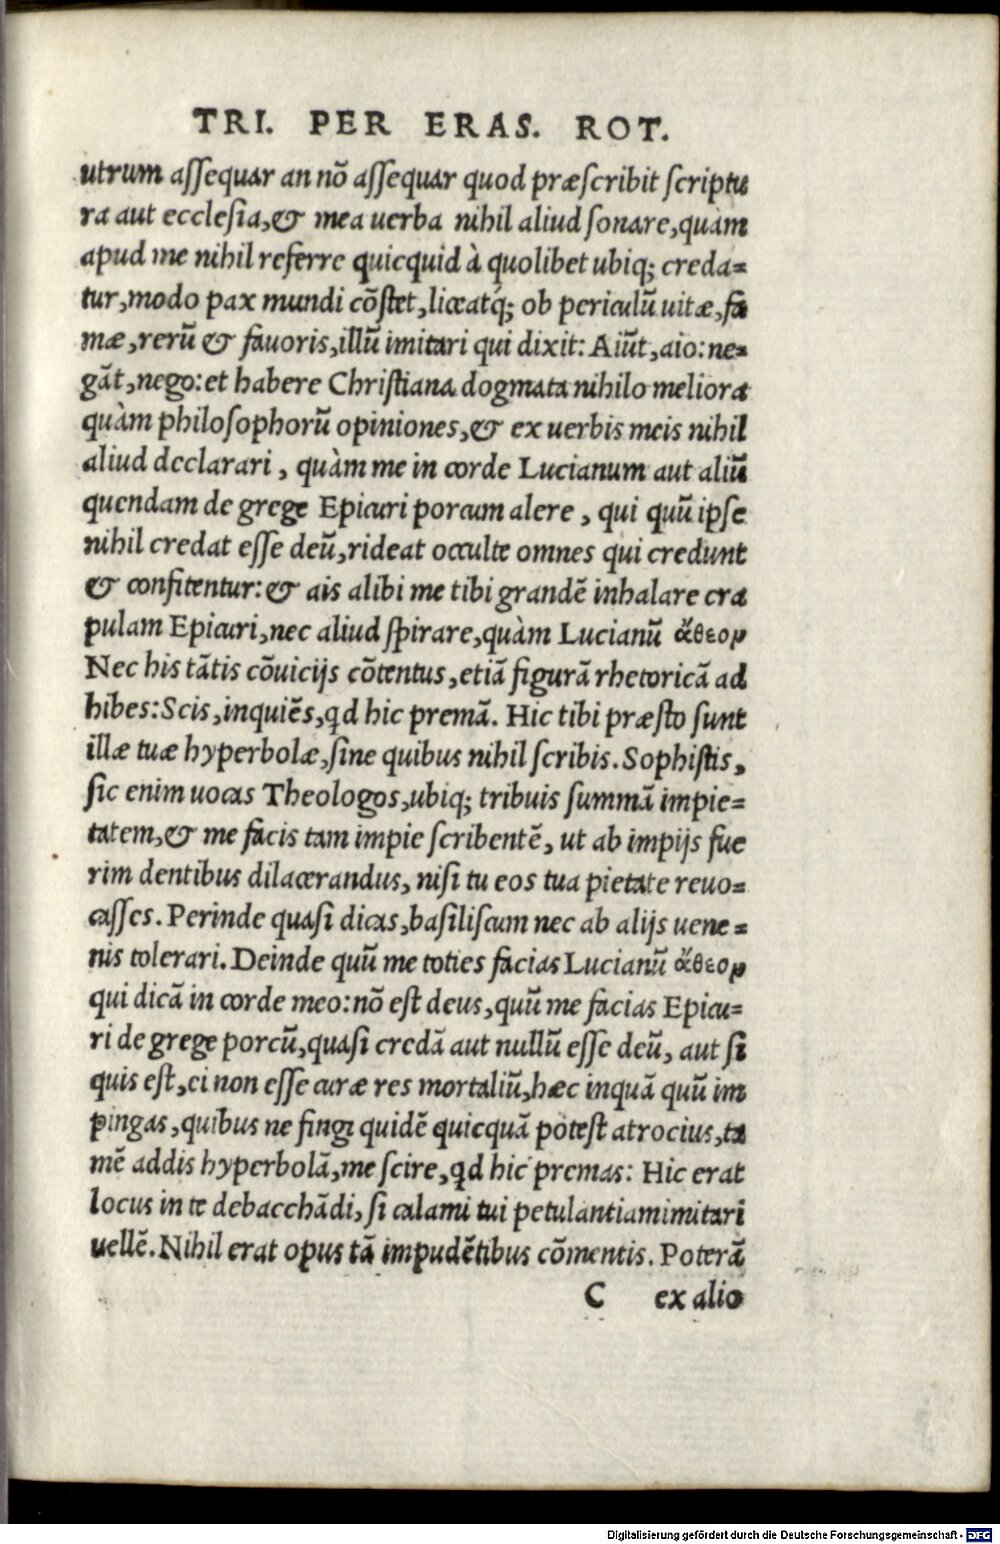 TRI. PER ERAS. ROT.
utrum aſſequar an nō aſſequar quod præſcribit ſcriptu
ra aut eccleſia,& mea uerba nihil aliud ſonare,quàm
apud me nihil referre quicquid à quolibet ubiq; creda=
tur,modo pax mundi cōſtet,liceatq́; ob periculū uitæ,fa
mæ,rerū & fauoris,illū imitari qui dixit: Aiūt,aio:ne=
gāt,nego:et habere Chriſtiana dogmata nihilo meliora
quàm philoſophorū opiniones,& ex uerbis meis nihil
aliud declarari, quàm me in corde Lucianum aut aliū
quendam de grege Epicuri porcum alere, qui quū ipſe
nihil credat eſſe deū,rideat occulte omnes qui credunt
& confitentur:& ais alibi me tibi grandē inhalare cra
pulam Epicuri,nec aliud ſpirare,quàm Lucianū ἄθεον
Nec his tātis cōuicijs cōtentus,etiā figurā rhetoricā ad
hibes:Scis,inquiēs,qd hic premā. Hic tibi præſto ſunt
illæ tuæ hyperbolæ,ſine quibus nihil ſcribis.Sophiſtis,
ſic enim uocas Theologos,ubiq; tribuis ſummā impie=
tatem,& me facis tam impie ſcribentē, ut ab impijs fue
rim dentibus dilacerandus, niſi tu eos tua pietate reuo=
caſſes. Perinde quaſi dicas,baſiliſcum nec ab alijs uene=
nis tolerari. Deinde quū me toties facias Lucianū ἄθεον
qui dicā in corde meo:nō eſt deus,quū me facias Epicu=
ri de grege porcū,quaſi credā aut nullū eſſe deū, aut ſi
quis eſt,ei non eſſe curæ res mortaliū,hæc inquā quū im
pingas,quibus ne fingi quidē quicquā poteſt atrocius,ta
mē addis hyperbolā,me ſcire,qd hic premas: Hic erat
locus in te debacchādi, ſi calami tui petulantiam imitari
uellē. Nihil erat opus tā impudētibus cōmentis. Poterā
C ex alio
Digitalisierung gefördert durch die Deutsche Forschungsgemeinschaft - DFG